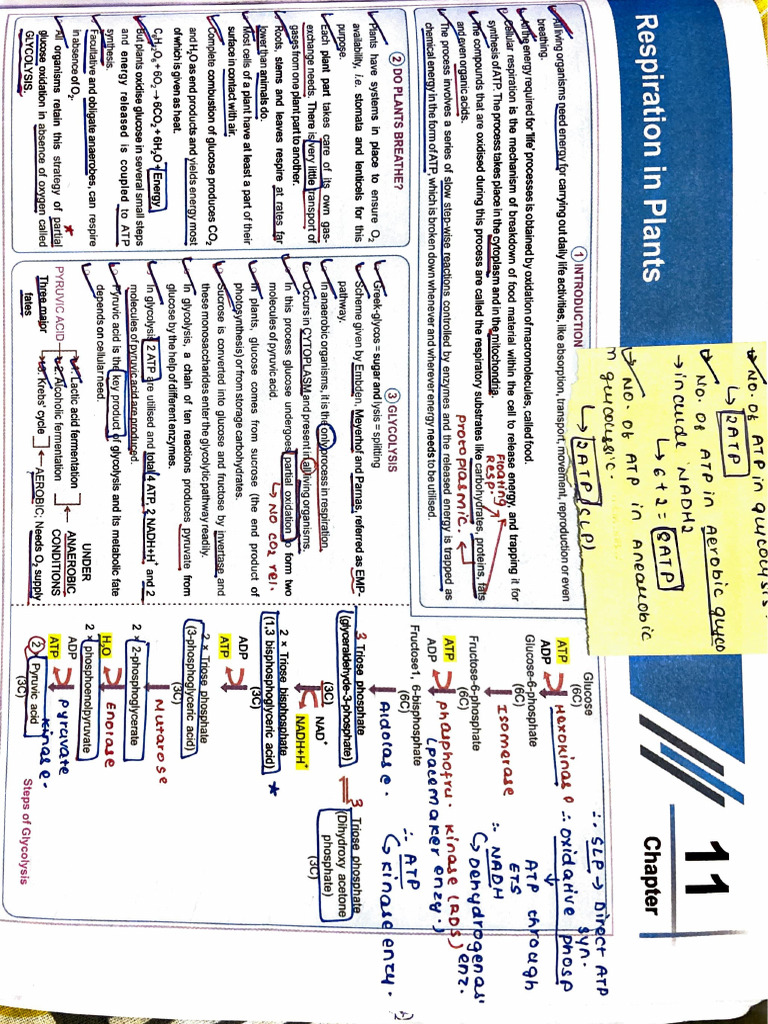 Respiration in Plants
11
Chapter
① INTRODUCTION
All living organisms need energy for carrying out daily life activities, like absorption, transport, movement, reproduction or even
breathing.
All the energy required for 'life' processes is obtained by oxidation of macromolecules, called food.
Cellular respiration is the mechanism of breakdown of food material within the cell to release energy, and trapping it for
synthesis of ATP. The process takes place in the cytoplasm and in the mitochondria.
The compounds that are oxidised during this process are called the respiratory substrates like carbohydrates, proteins, fats
and even organic acids.
The process involves a series of slow step-wise reactions controlled by enzymes and the released energy is trapped as
chemical energy in the form of ATP, which is broken down whenever and wherever energy needs to be utilised.
Floating
Resp.
Protoplasmic.
No. of ATP in glycolysis:
↳ 2ATP
No. of ATP in Aerobic glyco
→ include NADH2
↳ 6+2 = 8ATP
No. of ATP in aneauobic
glycolysic.
↳ 2ATP (SLP)
② DO PLANTS BREATHE?
Plants have systems in place to ensure O₂
availability, i.e. stomata and lenticels for this
purpose.
Each plant part takes care of its own gas-
exchange needs. There is very little transport of
gases from one plant part to another.
Roots, stems and leaves respire at rates far
lower than animals do.
Most cells of a plant have at least a part of their
surface in contact with air.
Complete combustion of glucose produces CO₂
and H₂O as end products and yields energy most
of which is given as heat.
C₆H₁₂O₆ + 6O₂ → 6CO₂ + 6H₂O + Energy
But plants oxidise glucose in several small steps
and energy released is coupled to ATP
synthesis.
Facultative and obligate anaerobes, can respire
in absence of O₂.
All organisms retain this strategy of partial
glucose oxidation in absence of oxygen called
GLYCOLYSIS.
③ GLYCOLYSIS
Greek-glycos = sugar and lysis = splitting
Scheme given by Embden, Meyerhof and Parnas, referred as EMP-
pathway.
In anaerobic organisms, it is the only process in respiration.
Occurs in CYTOPLASM and present in all living organisms.
In this process glucose undergoes partial oxidation to form two
molecules of pyruvic acid.
↳ NO CO₂ rel.
In plants, glucose comes from sucrose (the end product of
photosynthesis) or from storage carbohydrates.
Sucrose is converted into glucose and fructose by invertase and
these monosaccharides enter the glycolytic pathway readily.
In glycolysis, a chain of ten reactions produces pyruvate from
glucose by the help of different enzymes.
In glycolysis 2 ATP are utilised and total 4 ATP, 2 NADH+H⁺ and 2
molecules of pyruvic acid are produced.
Pyruvic acid is the key product of glycolysis and its metabolic fate
depends on cellular need.
PYRUVIC ACID
Three major
fates
1. Lactic acid fermentation
2. Alcoholic fermentation
3. Krebs' cycle
UNDER
ANAEROBIC
CONDITIONS
AEROBIC; Needs O₂ supply
Glucose
(6C)
ATP
ADP
Hexokinase
Glucose-6-phosphate
(6C)
Isomerase
Fructose-6-phosphate
(6C)
ATP
ADP
phosphofru. kinase (RDS)
(pacemaker enzy.)
Fructose1, 6-bisphosphate
(6C)
Aldolase.
3 Triose phosphate
(glyceraldehyde-3-phosphate)
(3C)
3 Triose phosphate
(Dihydroxy acetone
phosphate)
(3C)
NAD⁺
NADH+H⁺
2 × Triose bisphosphate
(1,3 bisphosphoglyceric acid)
(3C)
ADP
ATP
2 × Triose phosphate
(3-phosphoglyceric acid)
(3C)
Mutarose
2 × 2-phosphoglycerate
Enolase
H₂O
2 × phosphoenolpyruvate
ADP
ATP
Pyruvate
kinase.
2 Pyruvic acid
(3C)
Steps of Glycolysis
∴ SLP → Direct ATP
syn.
∴ oxidative phosp
↓
ATP through
ETS
∴ NADH
↳ Dehydrogenas'
enz.
∴ ATP
↳ Kinase enzy.